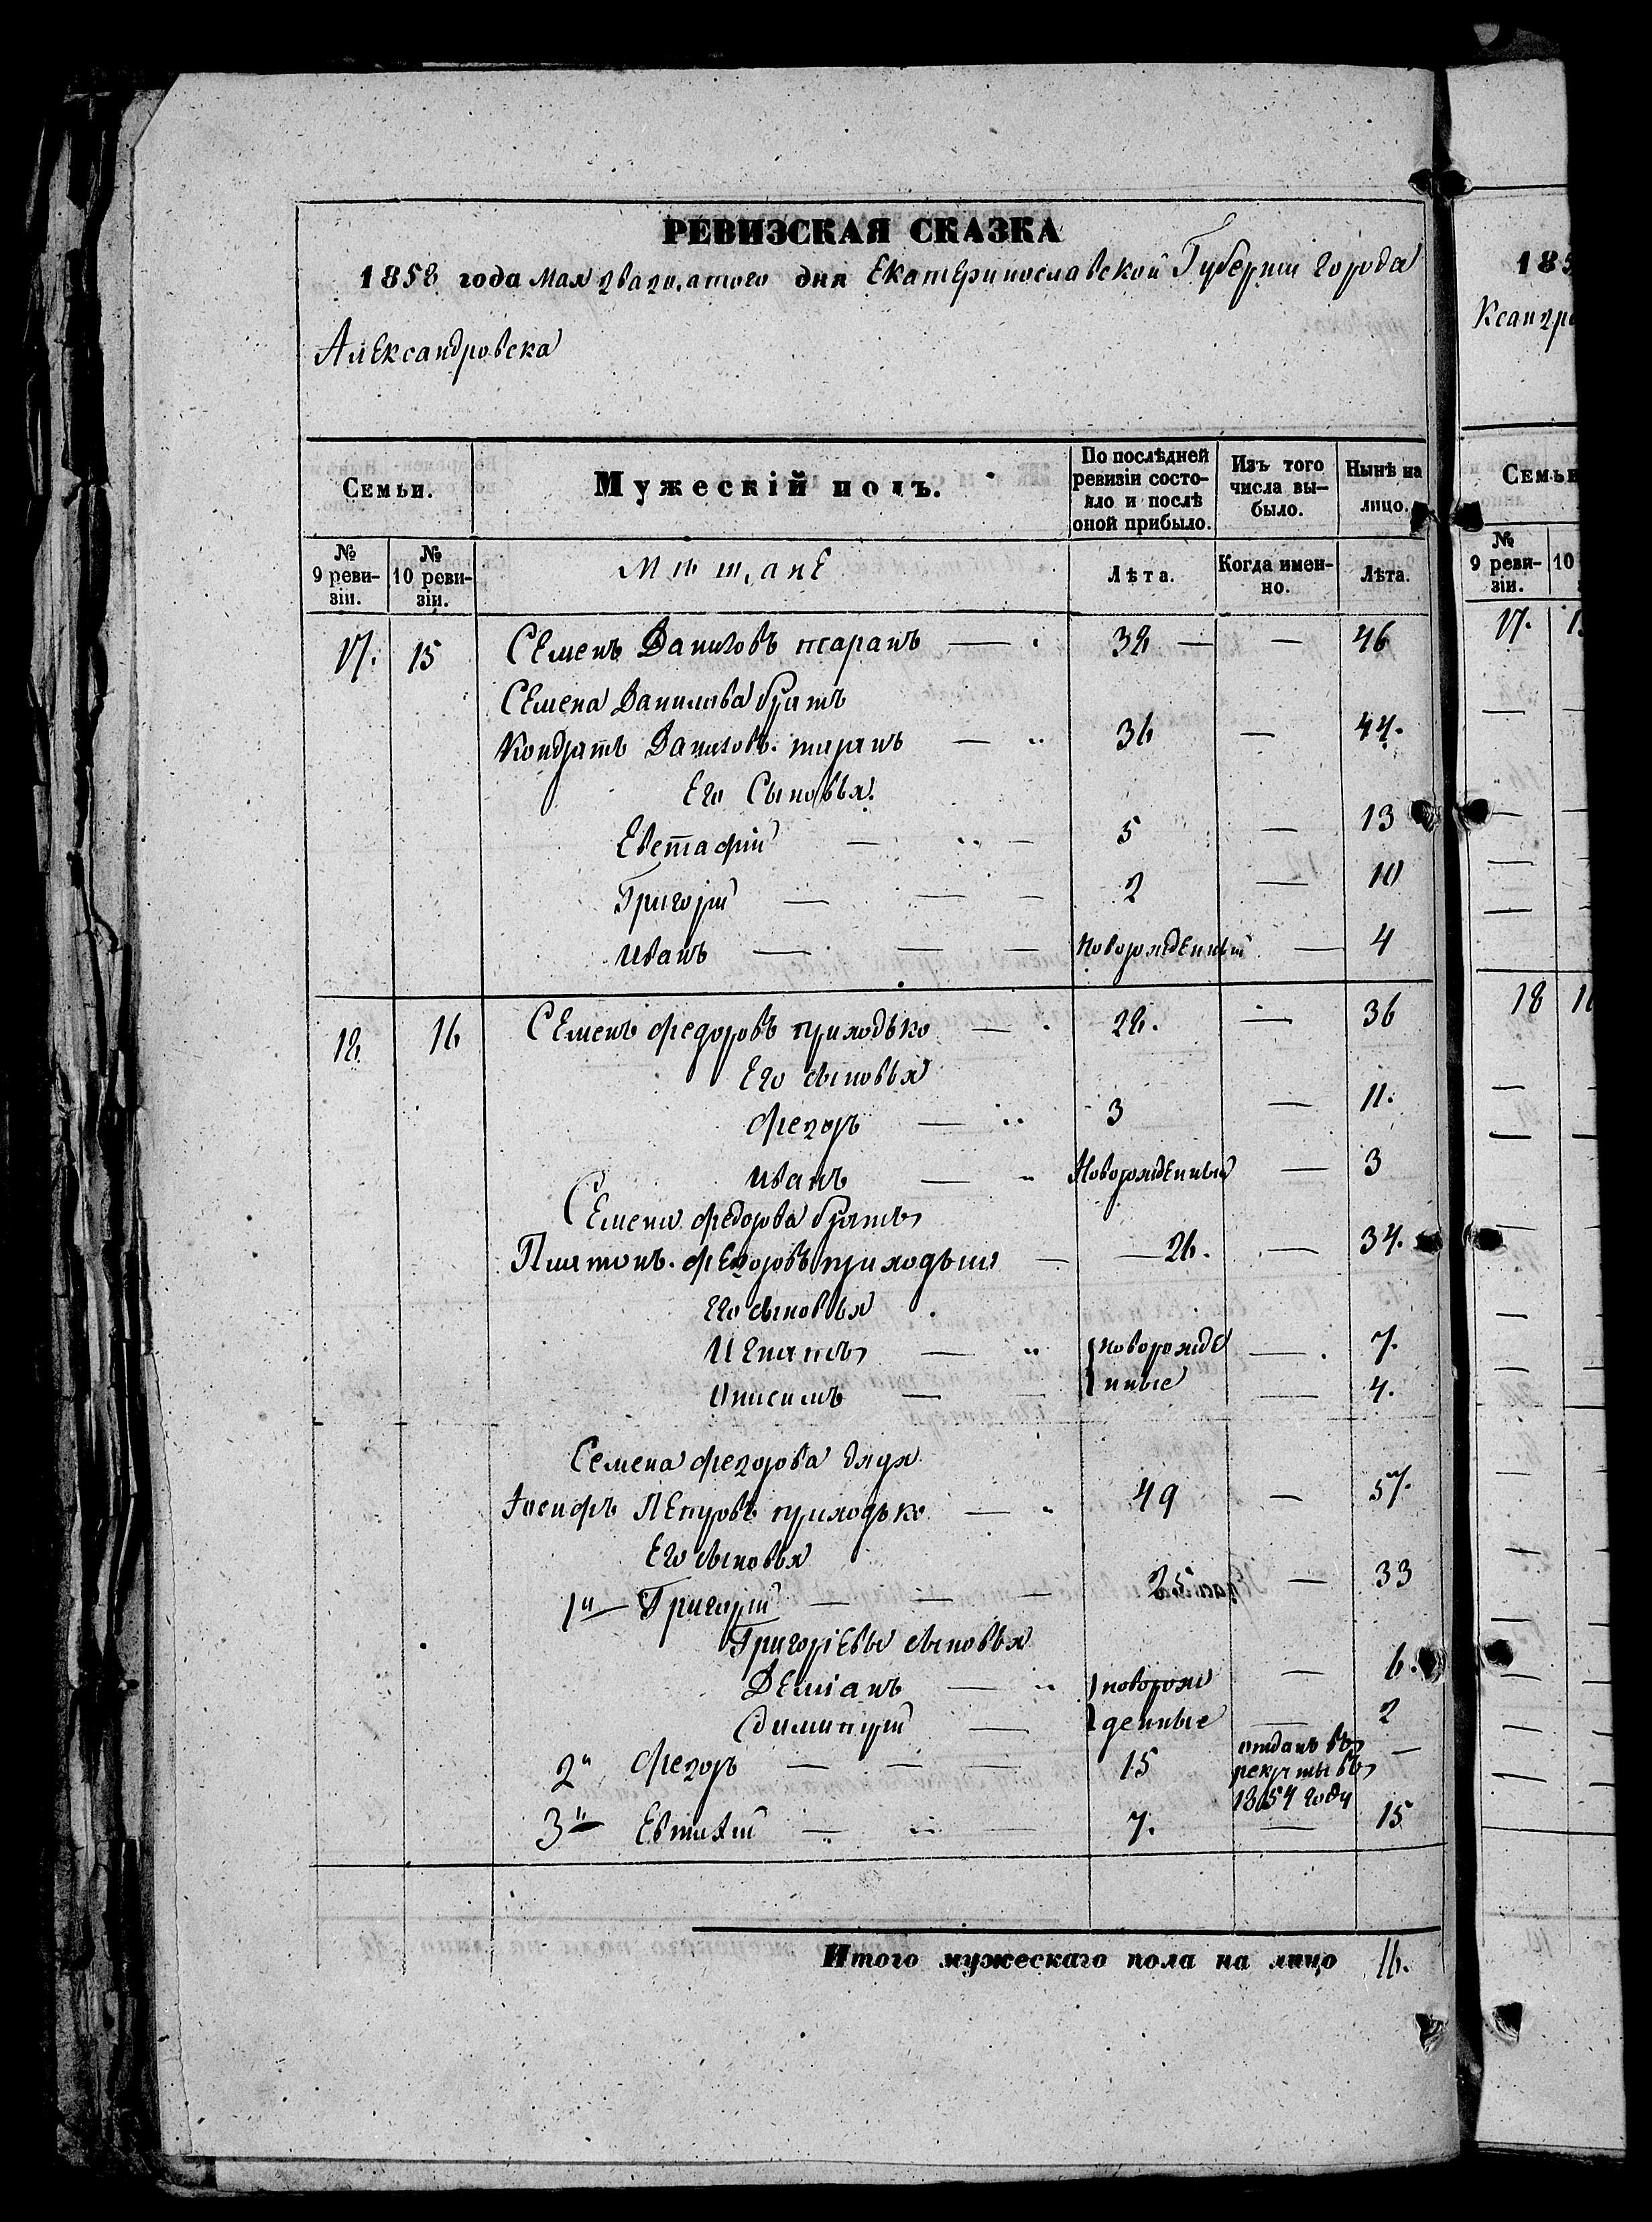 РЕВИЗСКАЯ СКАЗКА
1858 года Мая двадцатого дня Екатеринославской Губерніи города
Александровска
Семьи.
Мужескій полъ.
По послѣдней ревизіи состояло и послѣ оной прибыло.
Изъ того числа выбыло.
Нынѣ на лицо.
№ 9 ревизіи.
№ 10 ревизіи.
Мѣщане
Лѣта.
Когда именно.
Лѣта.
17. 15 Семенъ Даниловъ таранъ — 38 — — 46
Семена Данилова братъ
Кондратъ Даниловъ таранъ — 36 — 44.
Его Сыновья.
Евстафій — — 5 — 13
Григорій — — — 2 — 10
Иванъ — — — новорожденный — 4
18 16 Семенъ федоровъ приходько — 28. — 36
Его сыновья
федоръ — 3 — 11.
иванъ — Новорожденный — 3
Семена федорова братъ
Платонъ федоровъ — — 26. — 34.
Его сыновья
Игнатъ — новорожде — 7.
Онисимъ — — нные — 4.
Семена федорова дядя
Іосифъ Петровъ приходько — 49 — 57.
Его сыновья
1й — Григорій — — — 25 — 33
Григоріевы сыновья
Деміанъ — новорож — 6.
Димитрій — денные — 2
2й федоръ — — — 15 отданъ въ —
рекруты въ
1854 году
3й — Евтихій — — — 7. — 15
Итого мужескаго пола на лицо 16.
185
ксандро
Семьи
№ 9 ревизіи.
10
17. 1
18 16